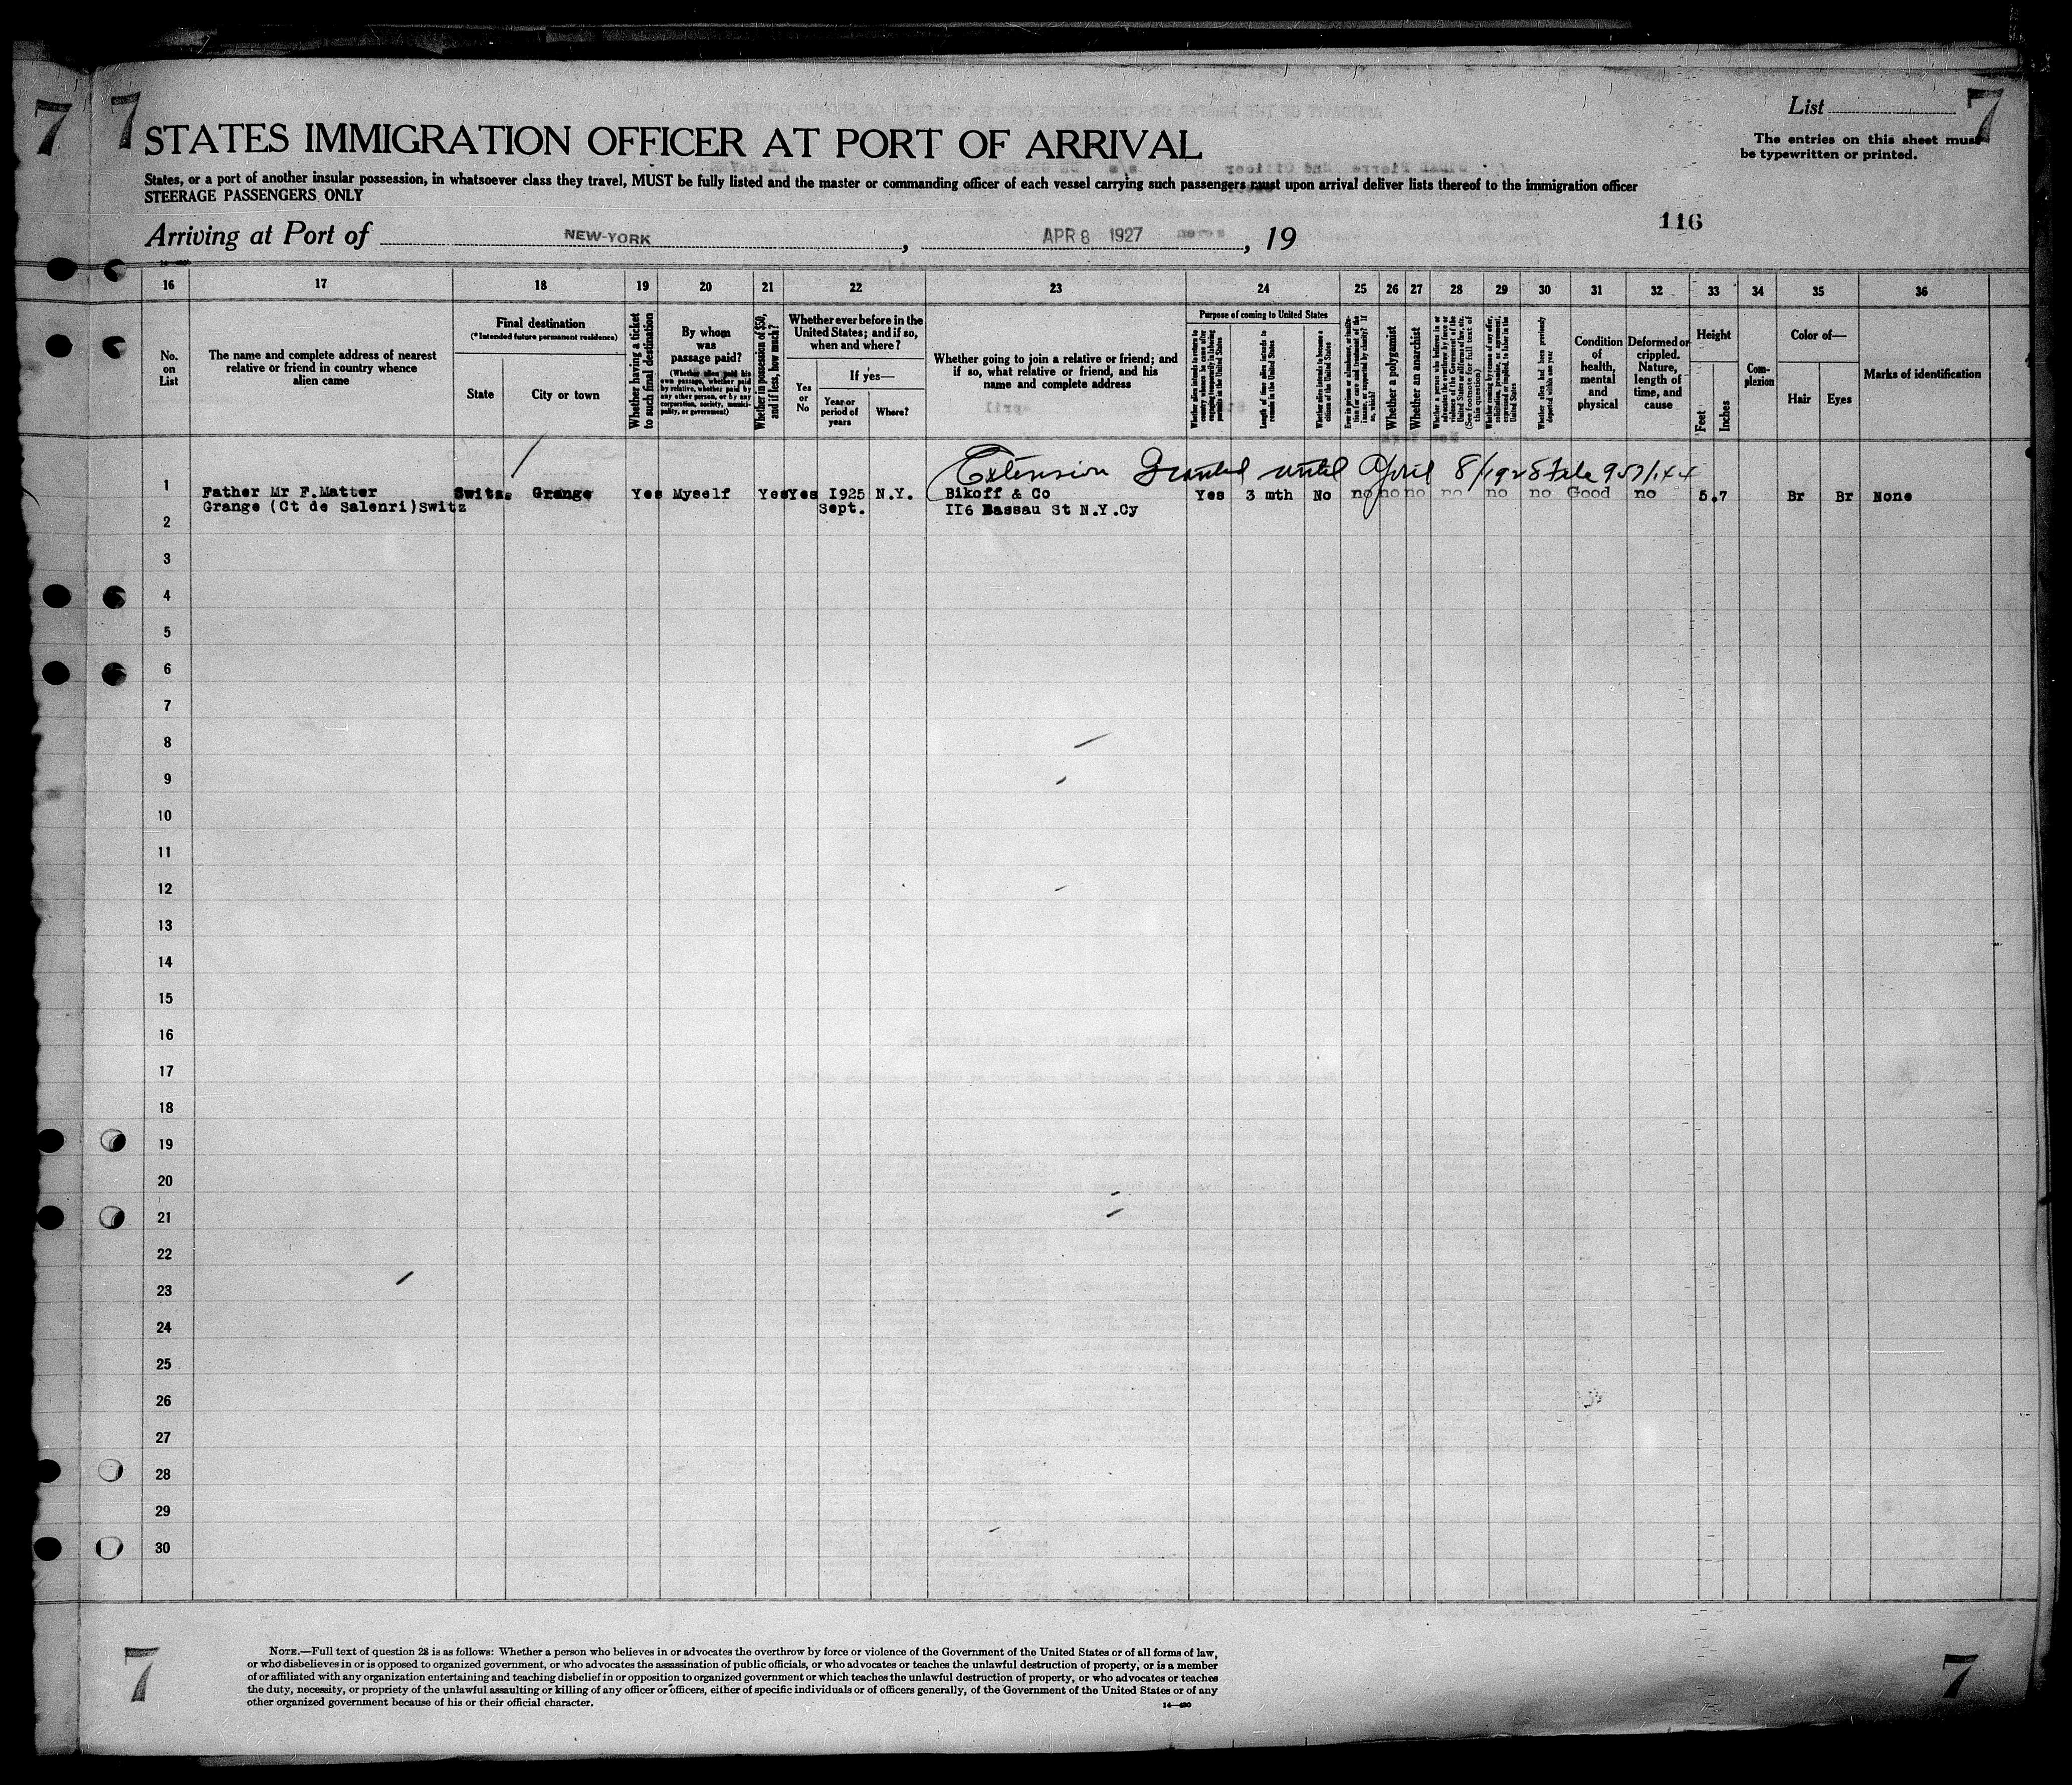 7 7 List 7
STATES IMMIGRATION OFFICER AT PORT OF ARRIVAL
The entries on this sheet must
be typewritten or printed.
States, or a port of another insular possession, in whatsoever class they travel, MUST be fully listed and the master or commanding officer of each vessel carrying such passengers must upon arrival deliver lists thereof to the immigration officer
STEERAGE PASSENGERS ONLY
116
Arriving at Port of NEW-YORK, APR 8 1927, 19
16 17 18 19 20 21 22 23 24 25 26 27 28 29 30 31 32 33 34 35 36
No. on List
The name and complete address of nearest
relative or friend in country whence
alien came
Final destination
(*Intended future permanent residence)
State
City or town
Whether having a ticket
to such final destination
By whom
was
passage paid?
(Whether alien paid his
own passage, whether paid
by relative, whether paid by
any other person, or by any
corporation, society, munici-
pality, or government)
Whether in possession of $50,
and if less, how much?
Whether ever before in the
United States; and if so,
when and where?
Yes
or
No
If yes—
Year or
period of
years
Where?
Whether going to join a relative or friend; and
if so, what relative or friend, and his
name and complete address
Purpose of coming to United States
Whether alien intends to return to
country whence he came after
engaging temporarily in laboring
pursuits in the United States
Length of time alien intends to
remain in the United States
Whether alien intends to become a
citizen of the United States
Whether a polygamist
Whether an anarchist
Whether alien had been previously
deported within one year
Condition
of
health,
mental
and
physical
Deformed or
crippled.
Nature,
length of
time, and
cause
Height
Feet
Inches
Com-
plexion
Color of—
Hair
Eyes
Marks of identification
Extension Granted until April 8/1928
1 Father Mr F.Matter Switz. Grange Yes Myself Yes Yes I925 N.Y. Bikoff & Co Yes 3 mth No no no no no no no Good no 5.7 Br Br None
Grange (Ct de Salenri)Switz Sept. II6 Nassau St N.Y.Cy
2
3
4
5
6
7
8
9
10
11
12
13
14
15
16
17
18
19
20
21
22
23
24
25
26
27
28
29
30
NOTE.—Full text of question 28 is as follows: Whether a person who believes in or advocates the overthrow by force or violence of the Government of the United States or of all forms of law,
or who disbelieves in or is opposed to organized government, or who advocates the assassination of public officials, or who advocates or teaches the unlawful destruction of property, or is a member
of or affiliated with any organization entertaining and teaching disbelief in or opposition to organized government or which teaches the unlawful destruction of property, or who advocates or teaches
the duty, necessity, or propriety of the unlawful assaulting or killing of any officer or officers, either of specific individuals or of officers generally, of the Government of the United States or of any
other organized government because of his or their official character.
14—420
7 7